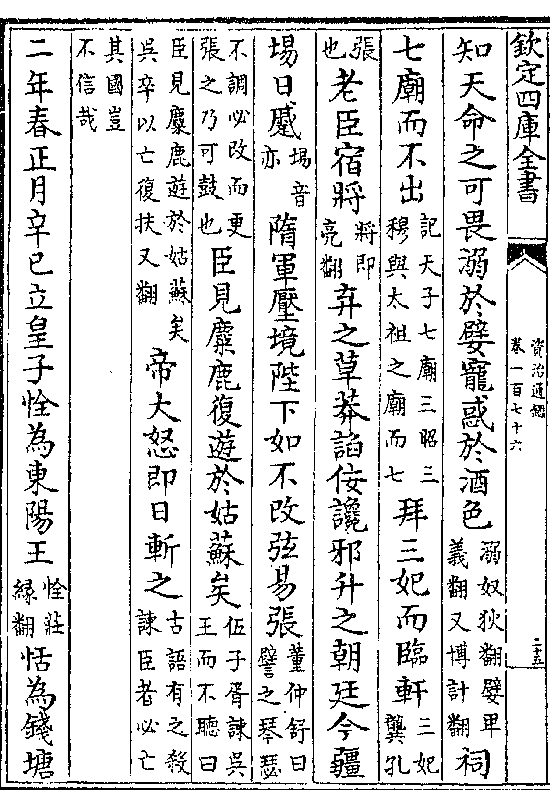 欽定四庫全書
資治通鑑
卷一百七十六
二十五
知天命之可畏溺於嬖寵惑於酒色溺奴狄翻嬖卑義翻又博計翻祠
七廟而不出記天子七廟三昭三穆與太祖之廟而七拜三妃而臨軒三妃龔孔
張也老臣宿將將即亮翻棄之草莽諂佞讒邪升之朝廷今疆
埸日蹙埸音亦隋軍壓境陛下如不改弦易張董仲舒曰譬之琴瑟
不調必改而更張之乃可鼓也臣見麋鹿復遊於姑蘇矣伍子胥諫吳王而不聽曰
臣見麋鹿遊於姑蘇矣吳卒以亡復扶又翻帝大怒即日斬之古語有之殺諫臣者必亡
其國豈不信哉
二年春正月辛巳立皇子恮為東陽王恮莊緑翻恬為錢塘